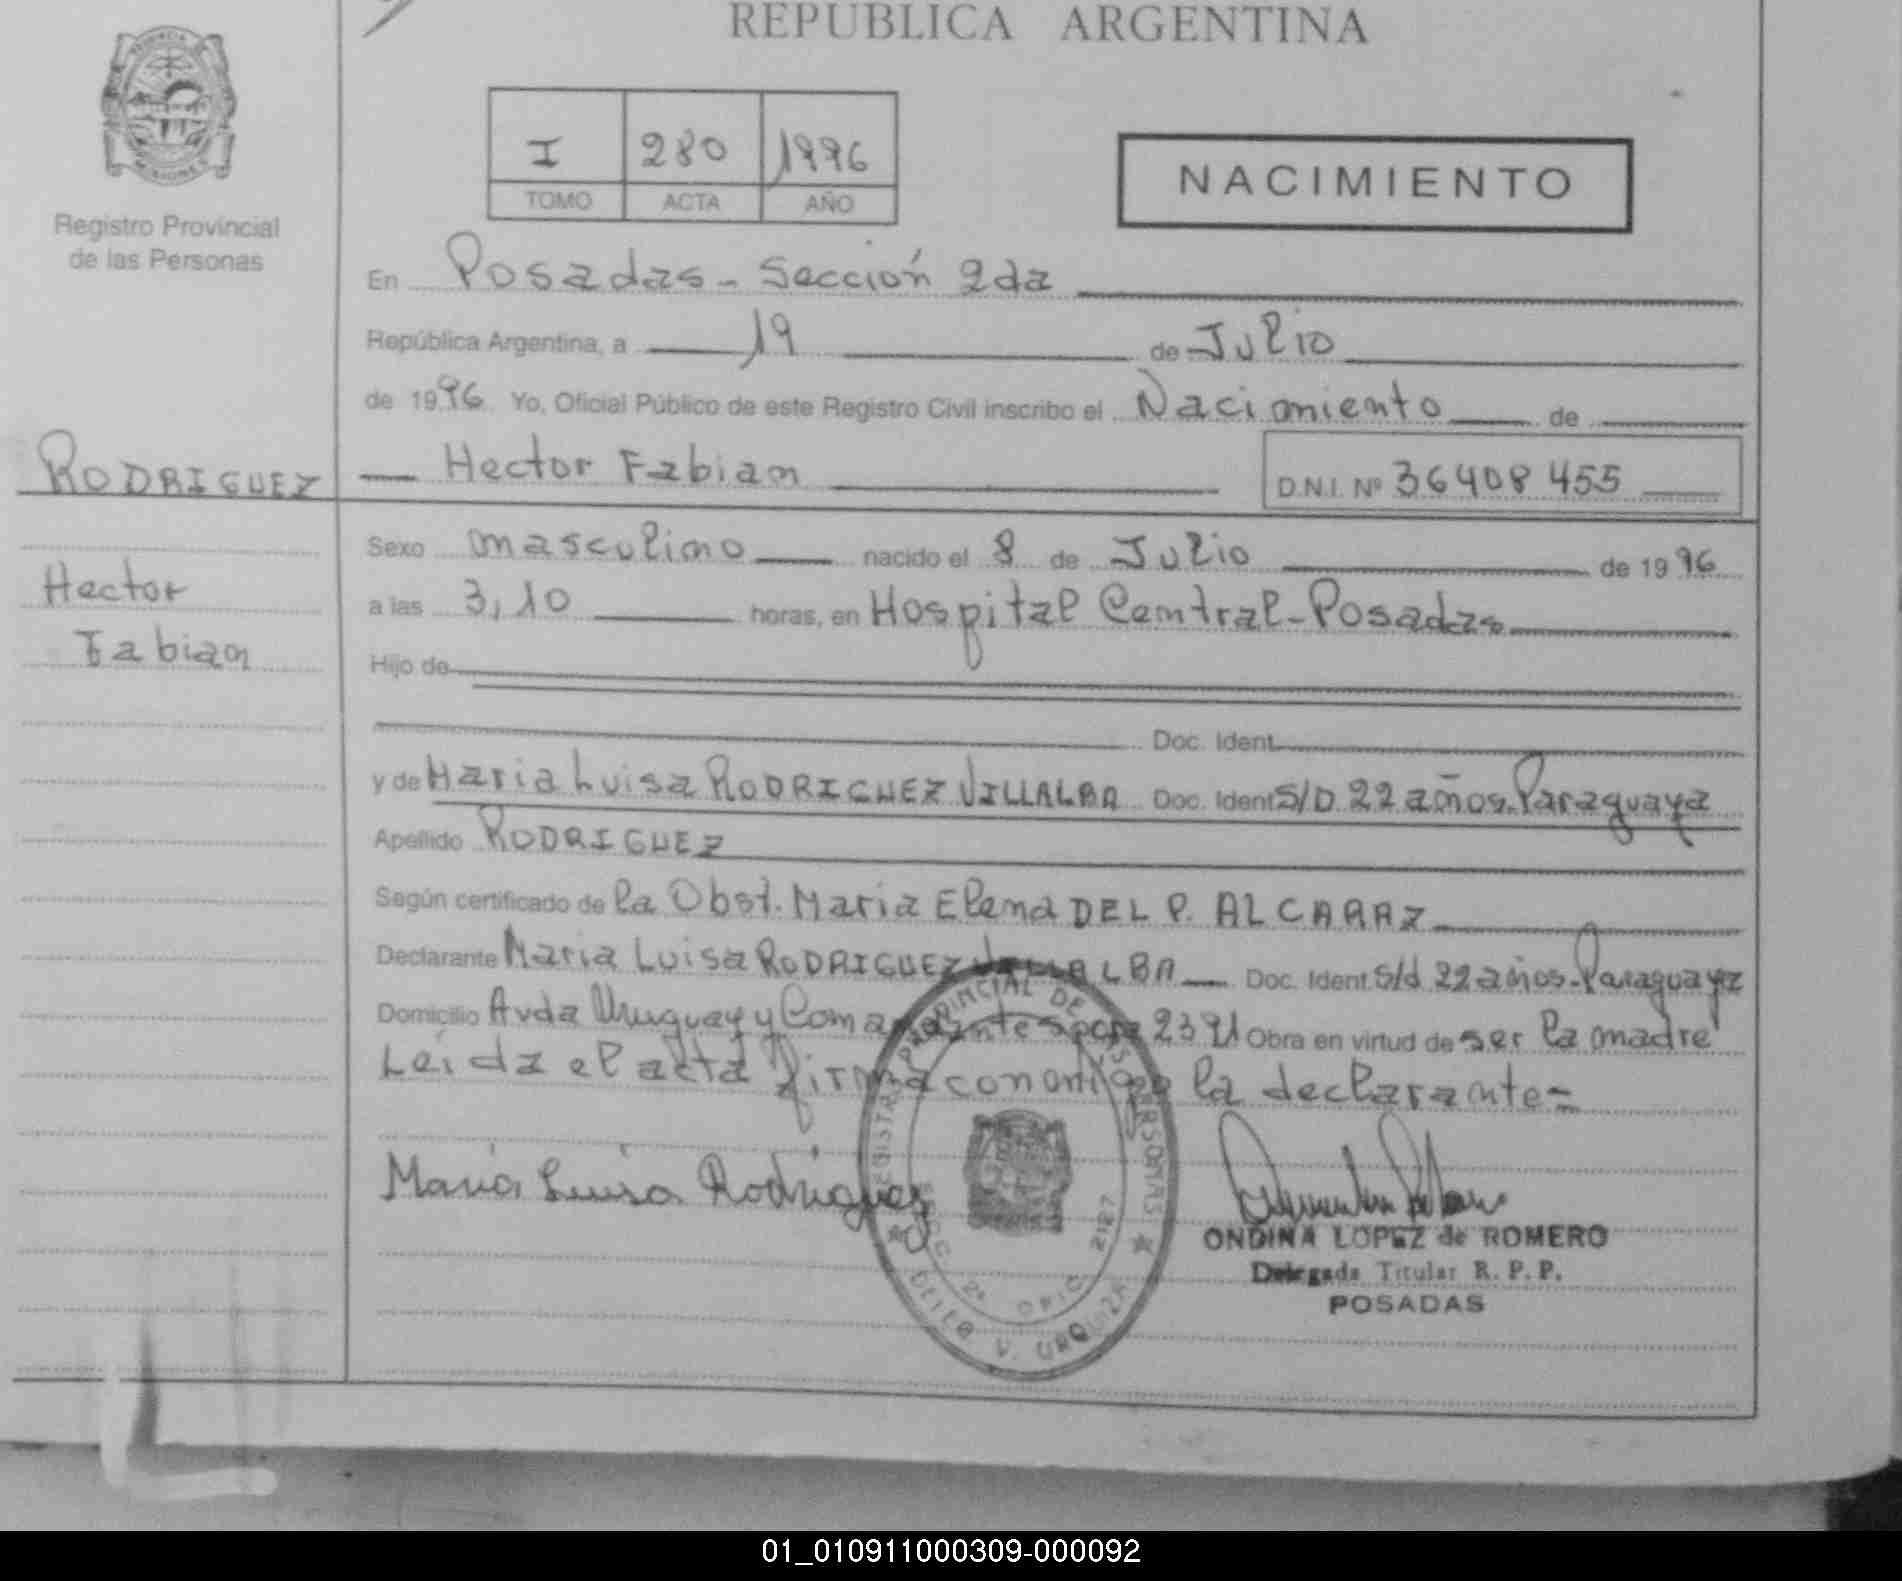 REPUBLICA ARGENTINA
I 280 1996
TOMO ACTA AÑO
NACIMIENTO
Registro Provincial
de las Personas
En Posadas - Sección 2da
República Argentina, a 19 de Julio
de 1996 Yo, Oficial Público de este Registro Civil inscribo el Nacimiento de
RODRIGUEZ
Hector
Fabian
Hector Fabian D.N.I. Nº 36408455
Sexo masculino nacido el 8 de Julio de 1996
a las 3,10 horas, en Hospital Central - Posadas
Hijo de
Doc. Ident.
y de Maria Luisa RODRIGUEZ VILLALBA Doc. Ident S/D 22 años. Paraguaya
Apellido RODRIGUEZ
Según certificado de la Obst. Maria Elena DEL P. ALCARAZ
Declarante Maria Luisa RODRIGUEZ VILLALBA Doc. Ident. S/d 22 años - Paraguaya
Domicilio Avda Uruguay y Comandante 2391 Obra en virtud de ser la madre
Leída el acta firma conmigo la declarante =
Maria Luisa Rodriguez
REGISTRO PROVINCIAL DE LAS PERSONAS
SECC. 2ª OFIC. 2127
DELEG. V. URQUIZA
ONDINA LOPEZ de ROMERO
Delegada Titular R. P. P.
POSADAS
01_010911000309-000092